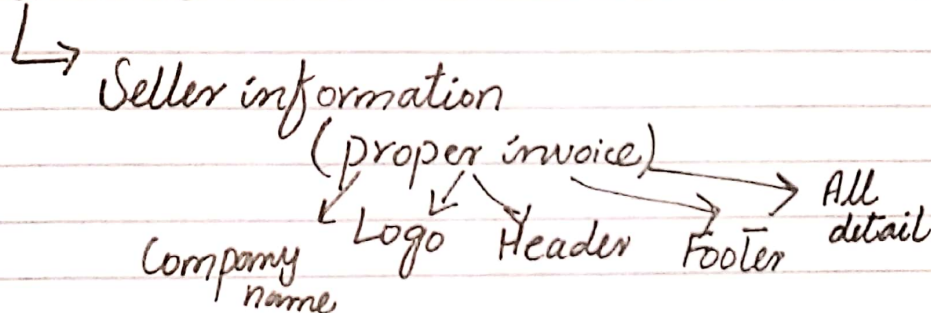 Seller information
(proper invoice)
Company name
Logo
Header
Footer
All detail